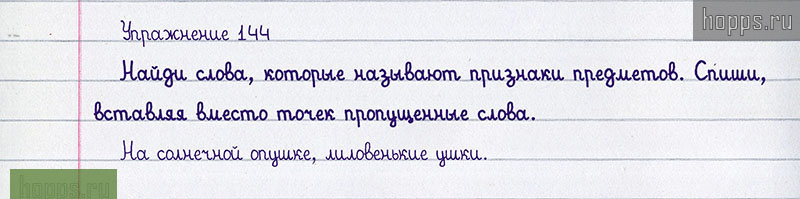 hopps.ru
Упражнение 144
Найди слова, которые называют признаки предметов. Спиши,
вставляя вместо точек пропущенные слова.
На солнечной опушке, лиловенькие ушки.
hopps.ru